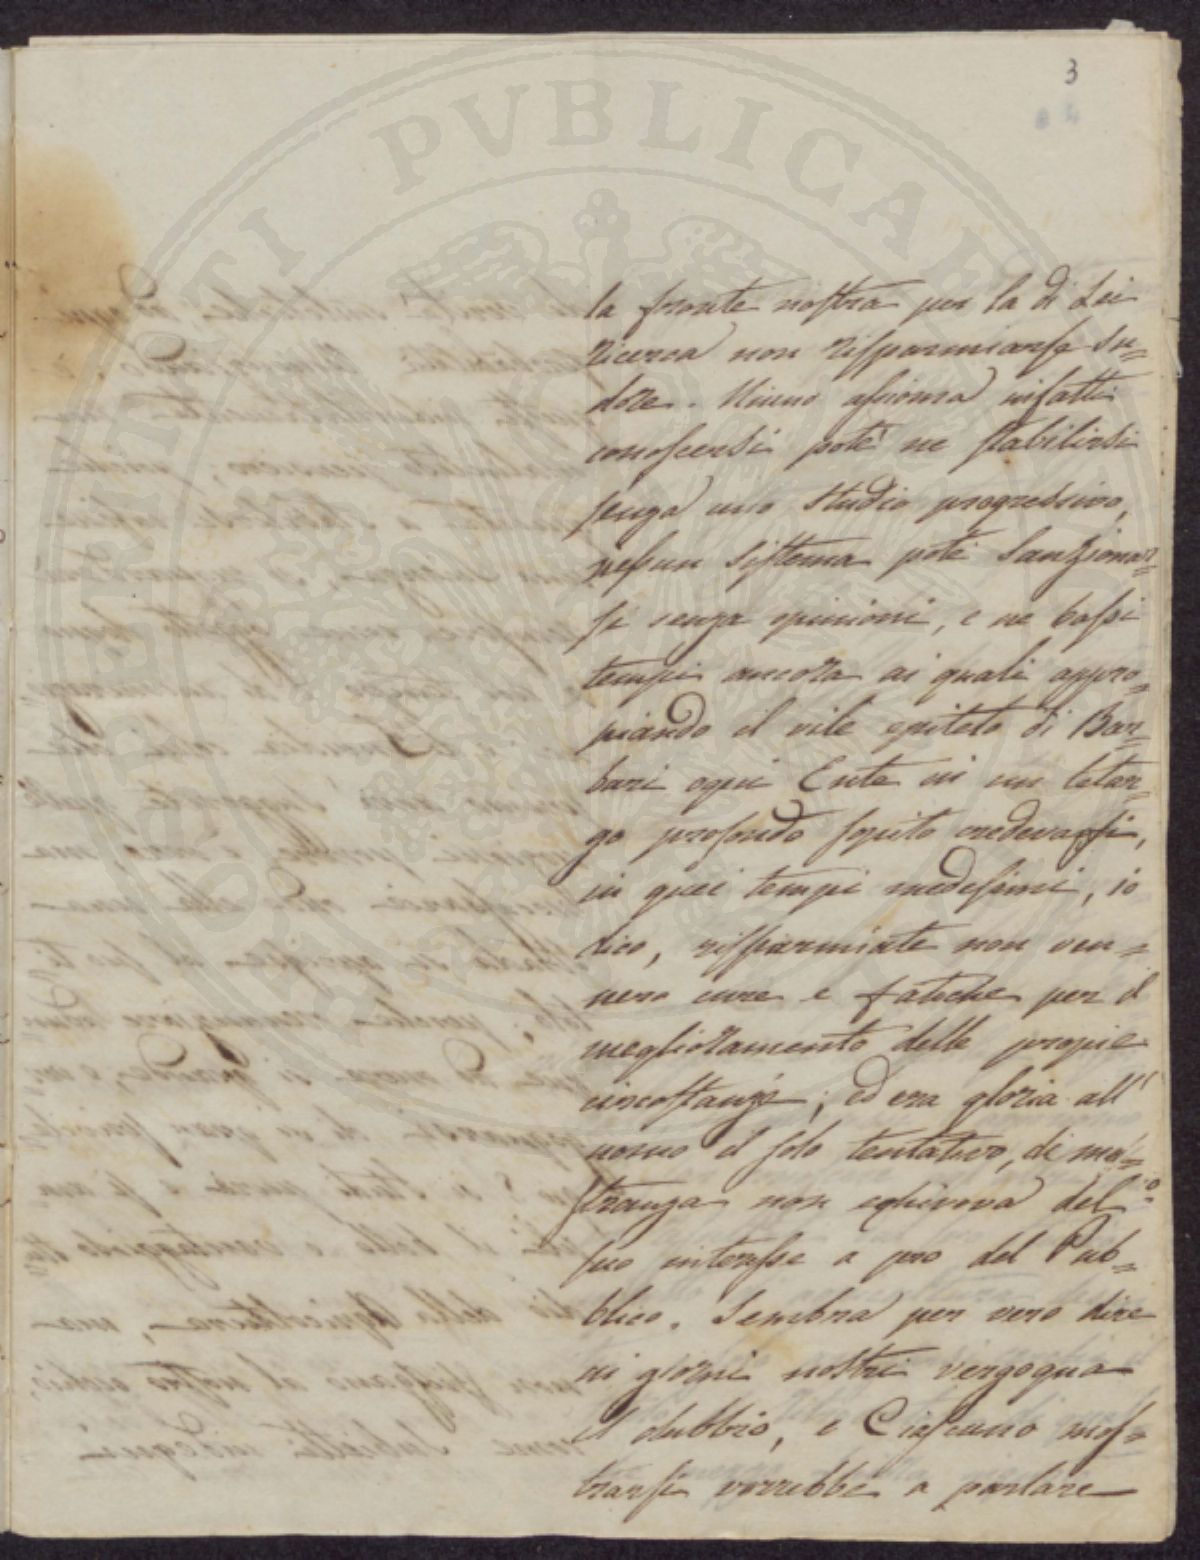 3
la fronte nostra per la di Lei
ricerca non risparmiarse su=
dore. Niuno assioma infatti
conoscersi potè ne stabilirsi
senza uno studio progressivo,
nessun sistema potè sanzionar=
si senza opinioni, e ne bassi
tempi ancora ai quali appro=
piando il vile epiteto di Bar=
bari ogni Ente in un letar=
go profondo sopito credevasi,
in quei tempi medesimi, io
dico, risparmiate non ven=
nero cure e fatiche per il
meglioramento delle propie
circostanze; ed era gloria all'
uomo il solo tentativo, di mo=
stranza non equivova del
suo interesse a pro del Pub=
blico. Sembra per vero dire
ni giorni nostri vergogna
il dubbio, e Ciascuno mos=
trarsi vorrebbe a parlare